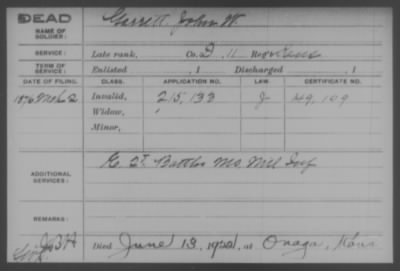 DEAD
NAME OF SOLDIER: Garrett, John W.
SERVICE: Late rank, Co. D, 11 Reg't Kans
TERM OF SERVICE: Enlisted , 1 Discharged , 1
DATE OF FILING. CLASS. APPLICATION NO. CERTIFICATE NO.
1876 Mch 2 Invalid, 215,133 149,109
Widow,
Minor,
ADDITIONAL SERVICES: Mo. Mil Inf
REMARKS:
Died June 13, 1922, at Onaga, Kans